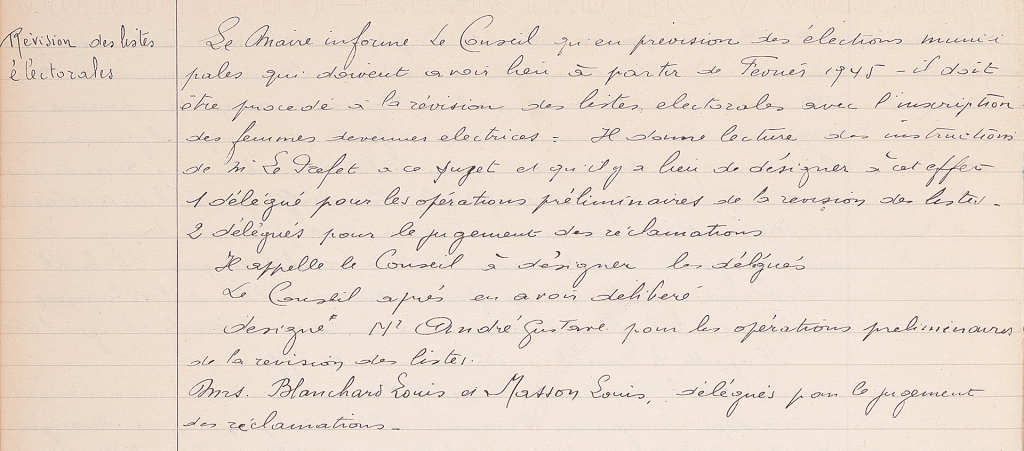 Révision des listes
électorales
Le Maire informe Le Conseil qu'en prevision des élections muni-i
pales qui doivent avoir lieu à partir de Fevrier 1945 - il doit
être procédé à la révision des listes electorales avec l'inscription
des femmes devenues electrices = Il donne lecture des instructions
de Mr Le Prefet a ce sujet et qu'il y a lieu de désigner à cet effet
1 délégué pour les opérations préliminaires de la revision des listes -
2 délégués pour le jugement des réclamations
Il appelle le Conseil à désigner les délégués
Le Conseil aprés en avoir deliberé
designe Mr André Gustave pour les opérations preliminaires
de la revision des listes.
Mrs. Blanchard Louis et Masson Louis, délégués pour le jugement
des réclamations -